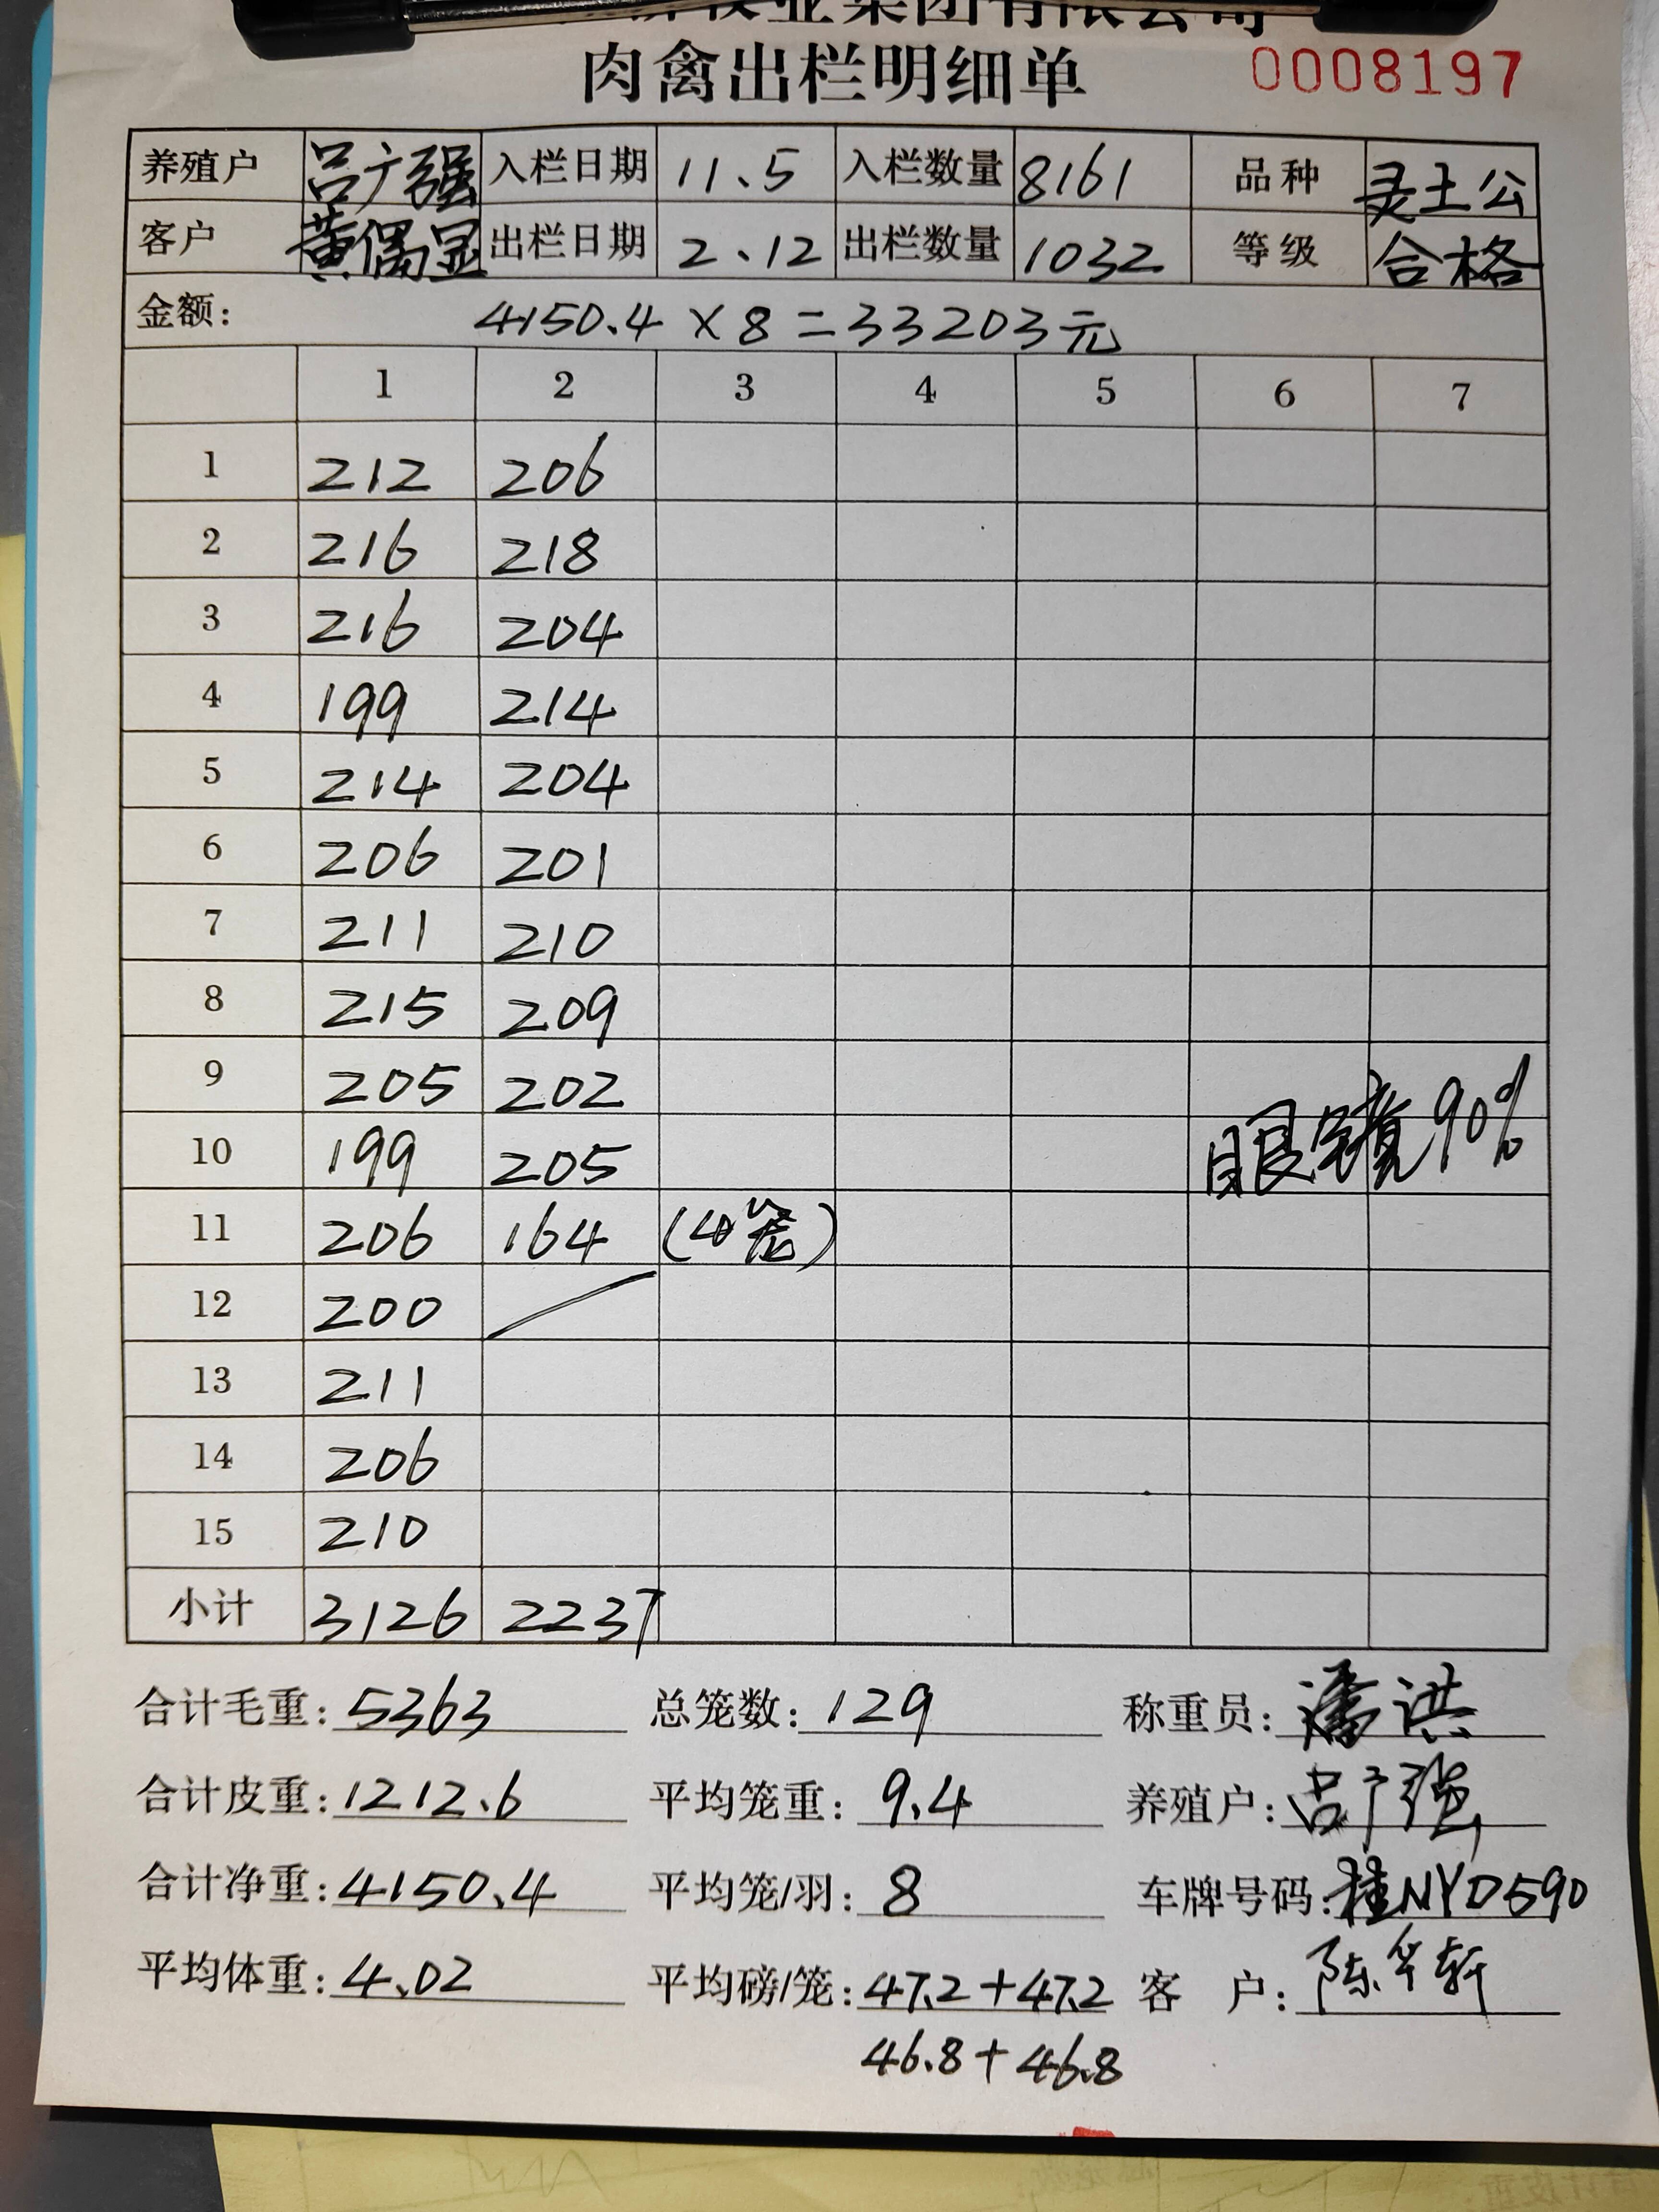 牧业集团有限公司
肉禽出栏明细单 0008197
养殖户 吕广强 入栏日期 11.5 入栏数量 8161 品种 灵土公
客户 黄偶显 出栏日期 2.12 出栏数量 1032 等级 合格
金额: 4150.4×8=33203元
1 2 3 4 5 6 7
1 212 206
2 216 218
3 216 204
4 199 214
5 214 204
6 206 201
7 211 210
8 215 209
9 205 202
10 199 205 眼镜90%
11 206 164 (4笼)
12 200
13 211
14 206
15 210
小计 3126 2237
合计毛重: 5363 总笼数: 129 称重员: 潘洪
合计皮重: 1212.6 平均笼重: 9.4 养殖户: 吕广强
合计净重: 4150.4 平均笼/羽: 8 车牌号码: 桂NYD590
平均体重: 4.02 平均磅/笼: 47.2+47.2 客 户: 陈华轩
46.8+46.8